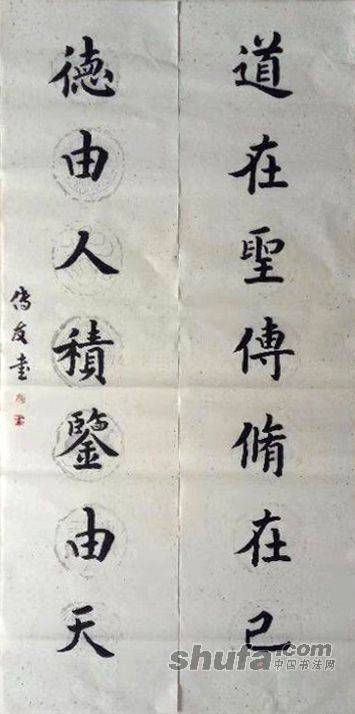 道在聖傳脩在己
德由人積鑒由天
傳友書
shufa.com
中国书法网